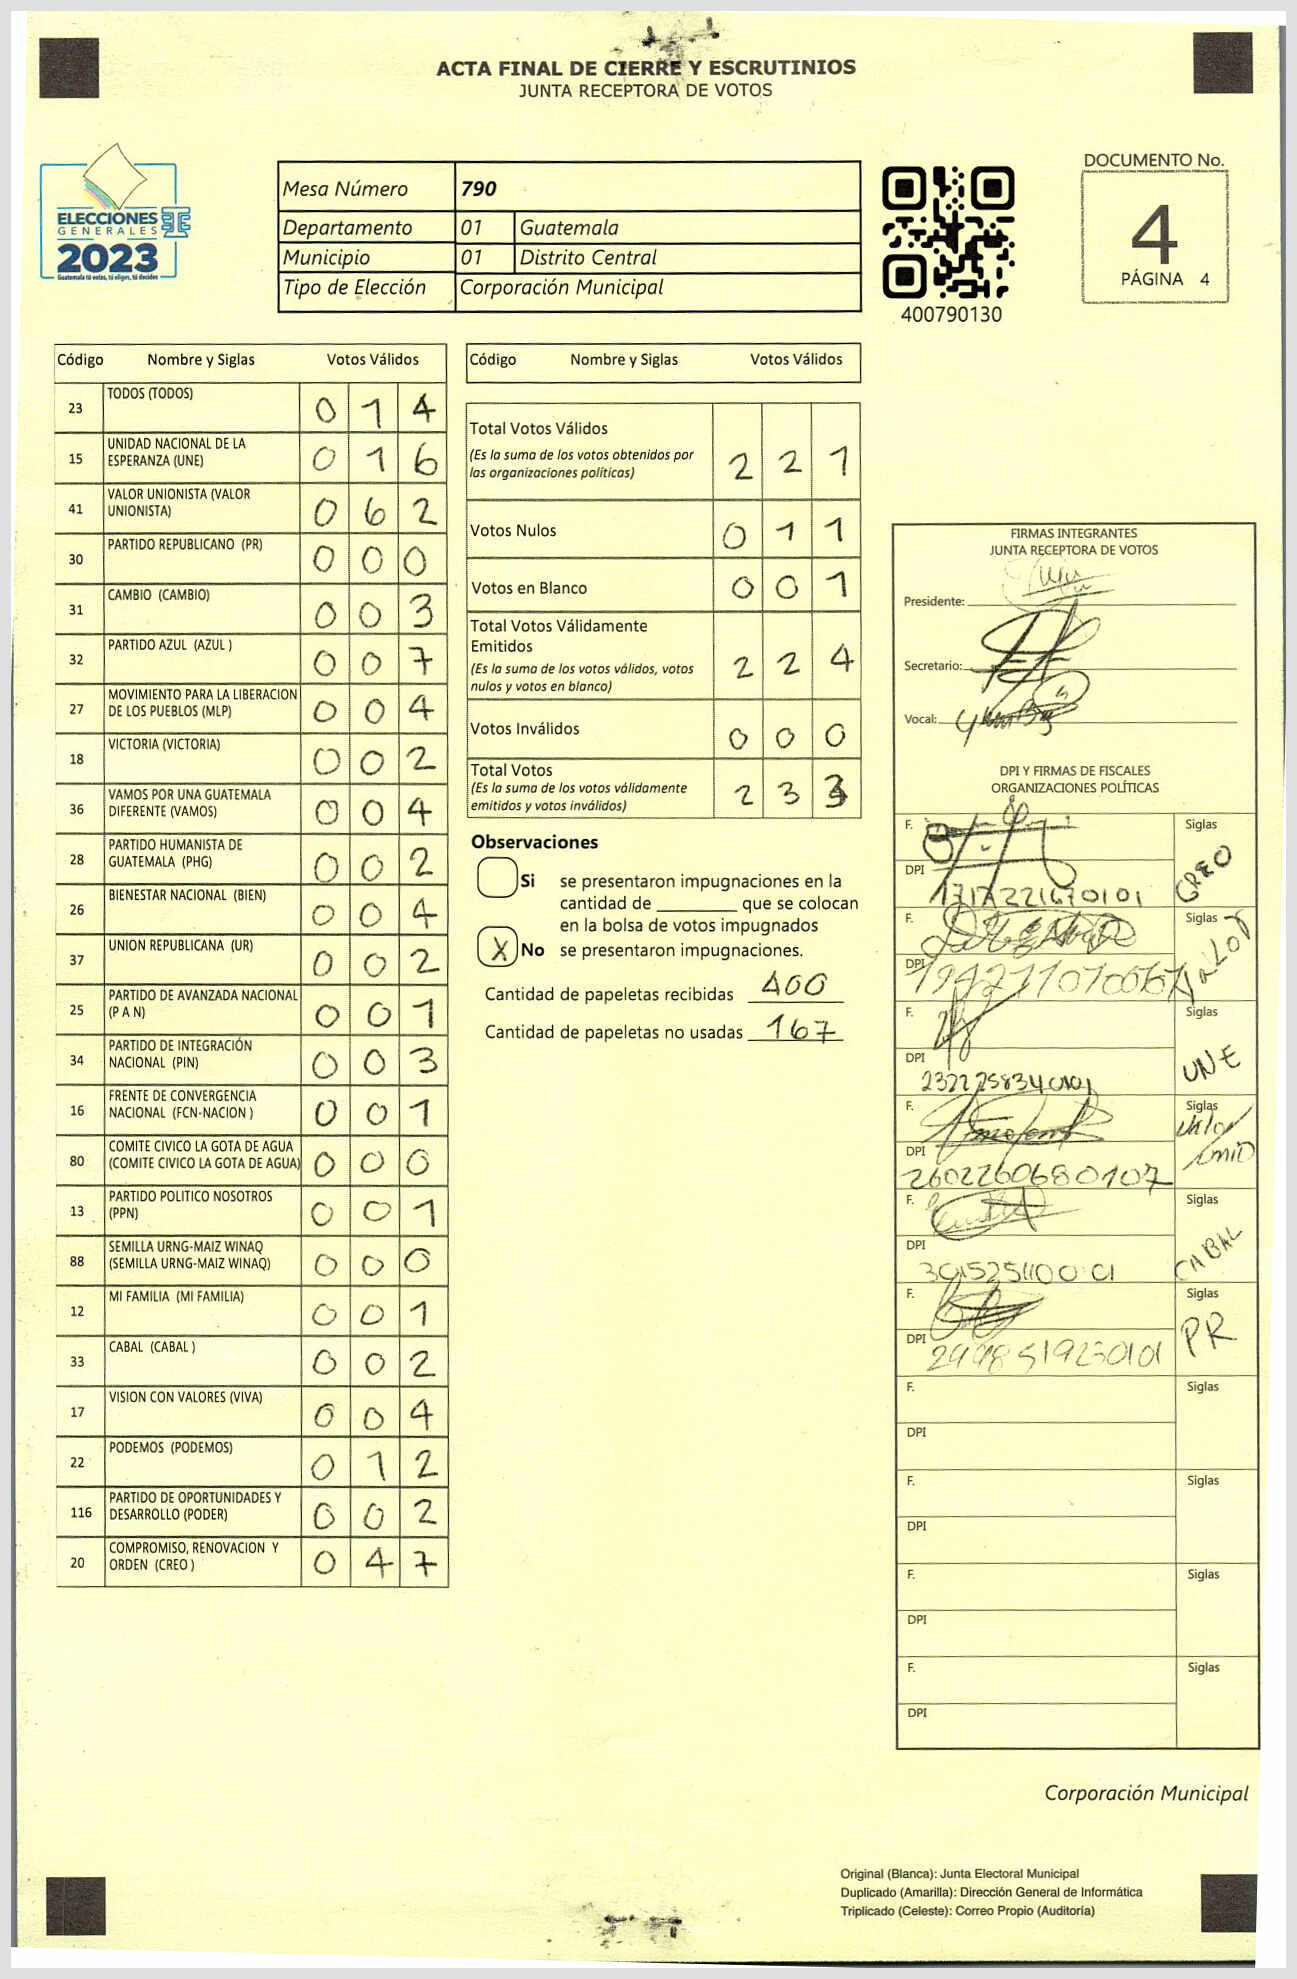 ACTA FINAL DE CIERRE Y ESCRUTINIOS
JUNTA RECEPTORA DE VOTOS
ELECCIONES
GENERALES
2023
Guatemala tú votas, tú eliges, tú decides
Mesa Número 790
Departamento 01 Guatemala
Municipio 01 Distrito Central
Tipo de Elección Corporación Municipal
400790130
DOCUMENTO No.
4
PÁGINA 4
Código Nombre y Siglas Votos Válidos
23 TODOS (TODOS) 0 1 4
15 UNIDAD NACIONAL DE LA
ESPERANZA (UNE) 0 1 6
41 VALOR UNIONISTA (VALOR
UNIONISTA) 0 6 2
30 PARTIDO REPUBLICANO (PR) 0 0 0
31 CAMBIO (CAMBIO) 0 0 3
32 PARTIDO AZUL (AZUL ) 0 0 7
27 MOVIMIENTO PARA LA LIBERACION
DE LOS PUEBLOS (MLP) 0 0 4
18 VICTORIA (VICTORIA) 0 0 2
36 VAMOS POR UNA GUATEMALA
DIFERENTE (VAMOS) 0 0 4
28 PARTIDO HUMANISTA DE
GUATEMALA (PHG) 0 0 2
26 BIENESTAR NACIONAL (BIEN) 0 0 4
37 UNION REPUBLICANA (UR) 0 0 2
25 PARTIDO DE AVANZADA NACIONAL
(P A N) 0 0 1
34 PARTIDO DE INTEGRACIÓN
NACIONAL (PIN) 0 0 3
16 FRENTE DE CONVERGENCIA
NACIONAL (FCN-NACION ) 0 0 1
80 COMITE CIVICO LA GOTA DE AGUA
(COMITE CIVICO LA GOTA DE AGUA) 0 0 0
13 PARTIDO POLITICO NOSOTROS
(PPN) 0 0 1
88 SEMILLA URNG-MAIZ WINAQ
(SEMILLA URNG-MAIZ WINAQ) 0 0 0
12 MI FAMILIA (MI FAMILIA) 0 0 1
33 CABAL (CABAL ) 0 0 2
17 VISION CON VALORES (VIVA) 0 0 4
22 PODEMOS (PODEMOS) 0 1 2
116 PARTIDO DE OPORTUNIDADES Y
DESARROLLO (PODER) 0 0 2
20 COMPROMISO, RENOVACION Y
ORDEN (CREO ) 0 4 7
Código Nombre y Siglas Votos Válidos
Total Votos Válidos
(Es la suma de los votos obtenidos por
las organizaciones políticas) 2 2 1
Votos Nulos 0 1 1
Votos en Blanco 0 0 1
Total Votos Válidamente
Emitidos
(Es la suma de los votos válidos, votos
nulos y votos en blanco) 2 2 4
Votos Inválidos 0 0 0
Total Votos
(Es la suma de los votos válidamente
emitidos y votos inválidos) 2 3 3
Observaciones
Si se presentaron impugnaciones en la
cantidad de ________ que se colocan
en la bolsa de votos impugnados
X No se presentaron impugnaciones.
Cantidad de papeletas recibidas 400
Cantidad de papeletas no usadas 167
FIRMAS INTEGRANTES
JUNTA RECEPTORA DE VOTOS
Presidente:
Secretario:
Vocal:
DPI Y FIRMAS DE FISCALES
ORGANIZACIONES POLÍTICAS
F. Siglas
DPI CREO
F. Siglas
DPI Valor
F. Siglas
DPI 2322258340101 UNE
F. Siglas
DPI 2602260680107 Valor
F. Siglas
DPI CABAL
F. Siglas
DPI PR
F. Siglas
DPI
F. Siglas
DPI
F. Siglas
DPI
F. Siglas
DPI
Corporación Municipal
Original (Blanca): Junta Electoral Municipal
Duplicado (Amarilla): Dirección General de Informática
Triplicado (Celeste): Correo Propio (Auditoría)